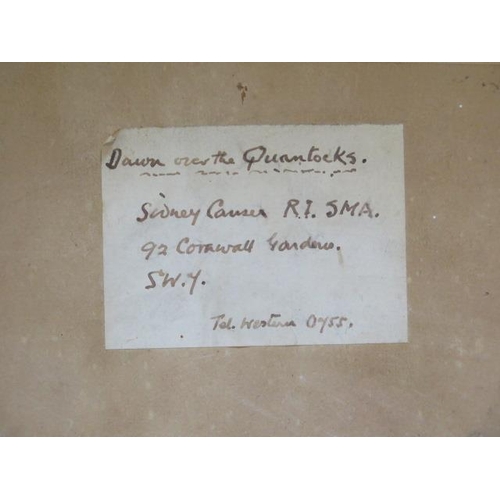 Dawn over the Quantocks.
Sidney Causer R.I. SMA.
92 Cornwall Gardens.
S.W.7.
Tel. Western 0755.